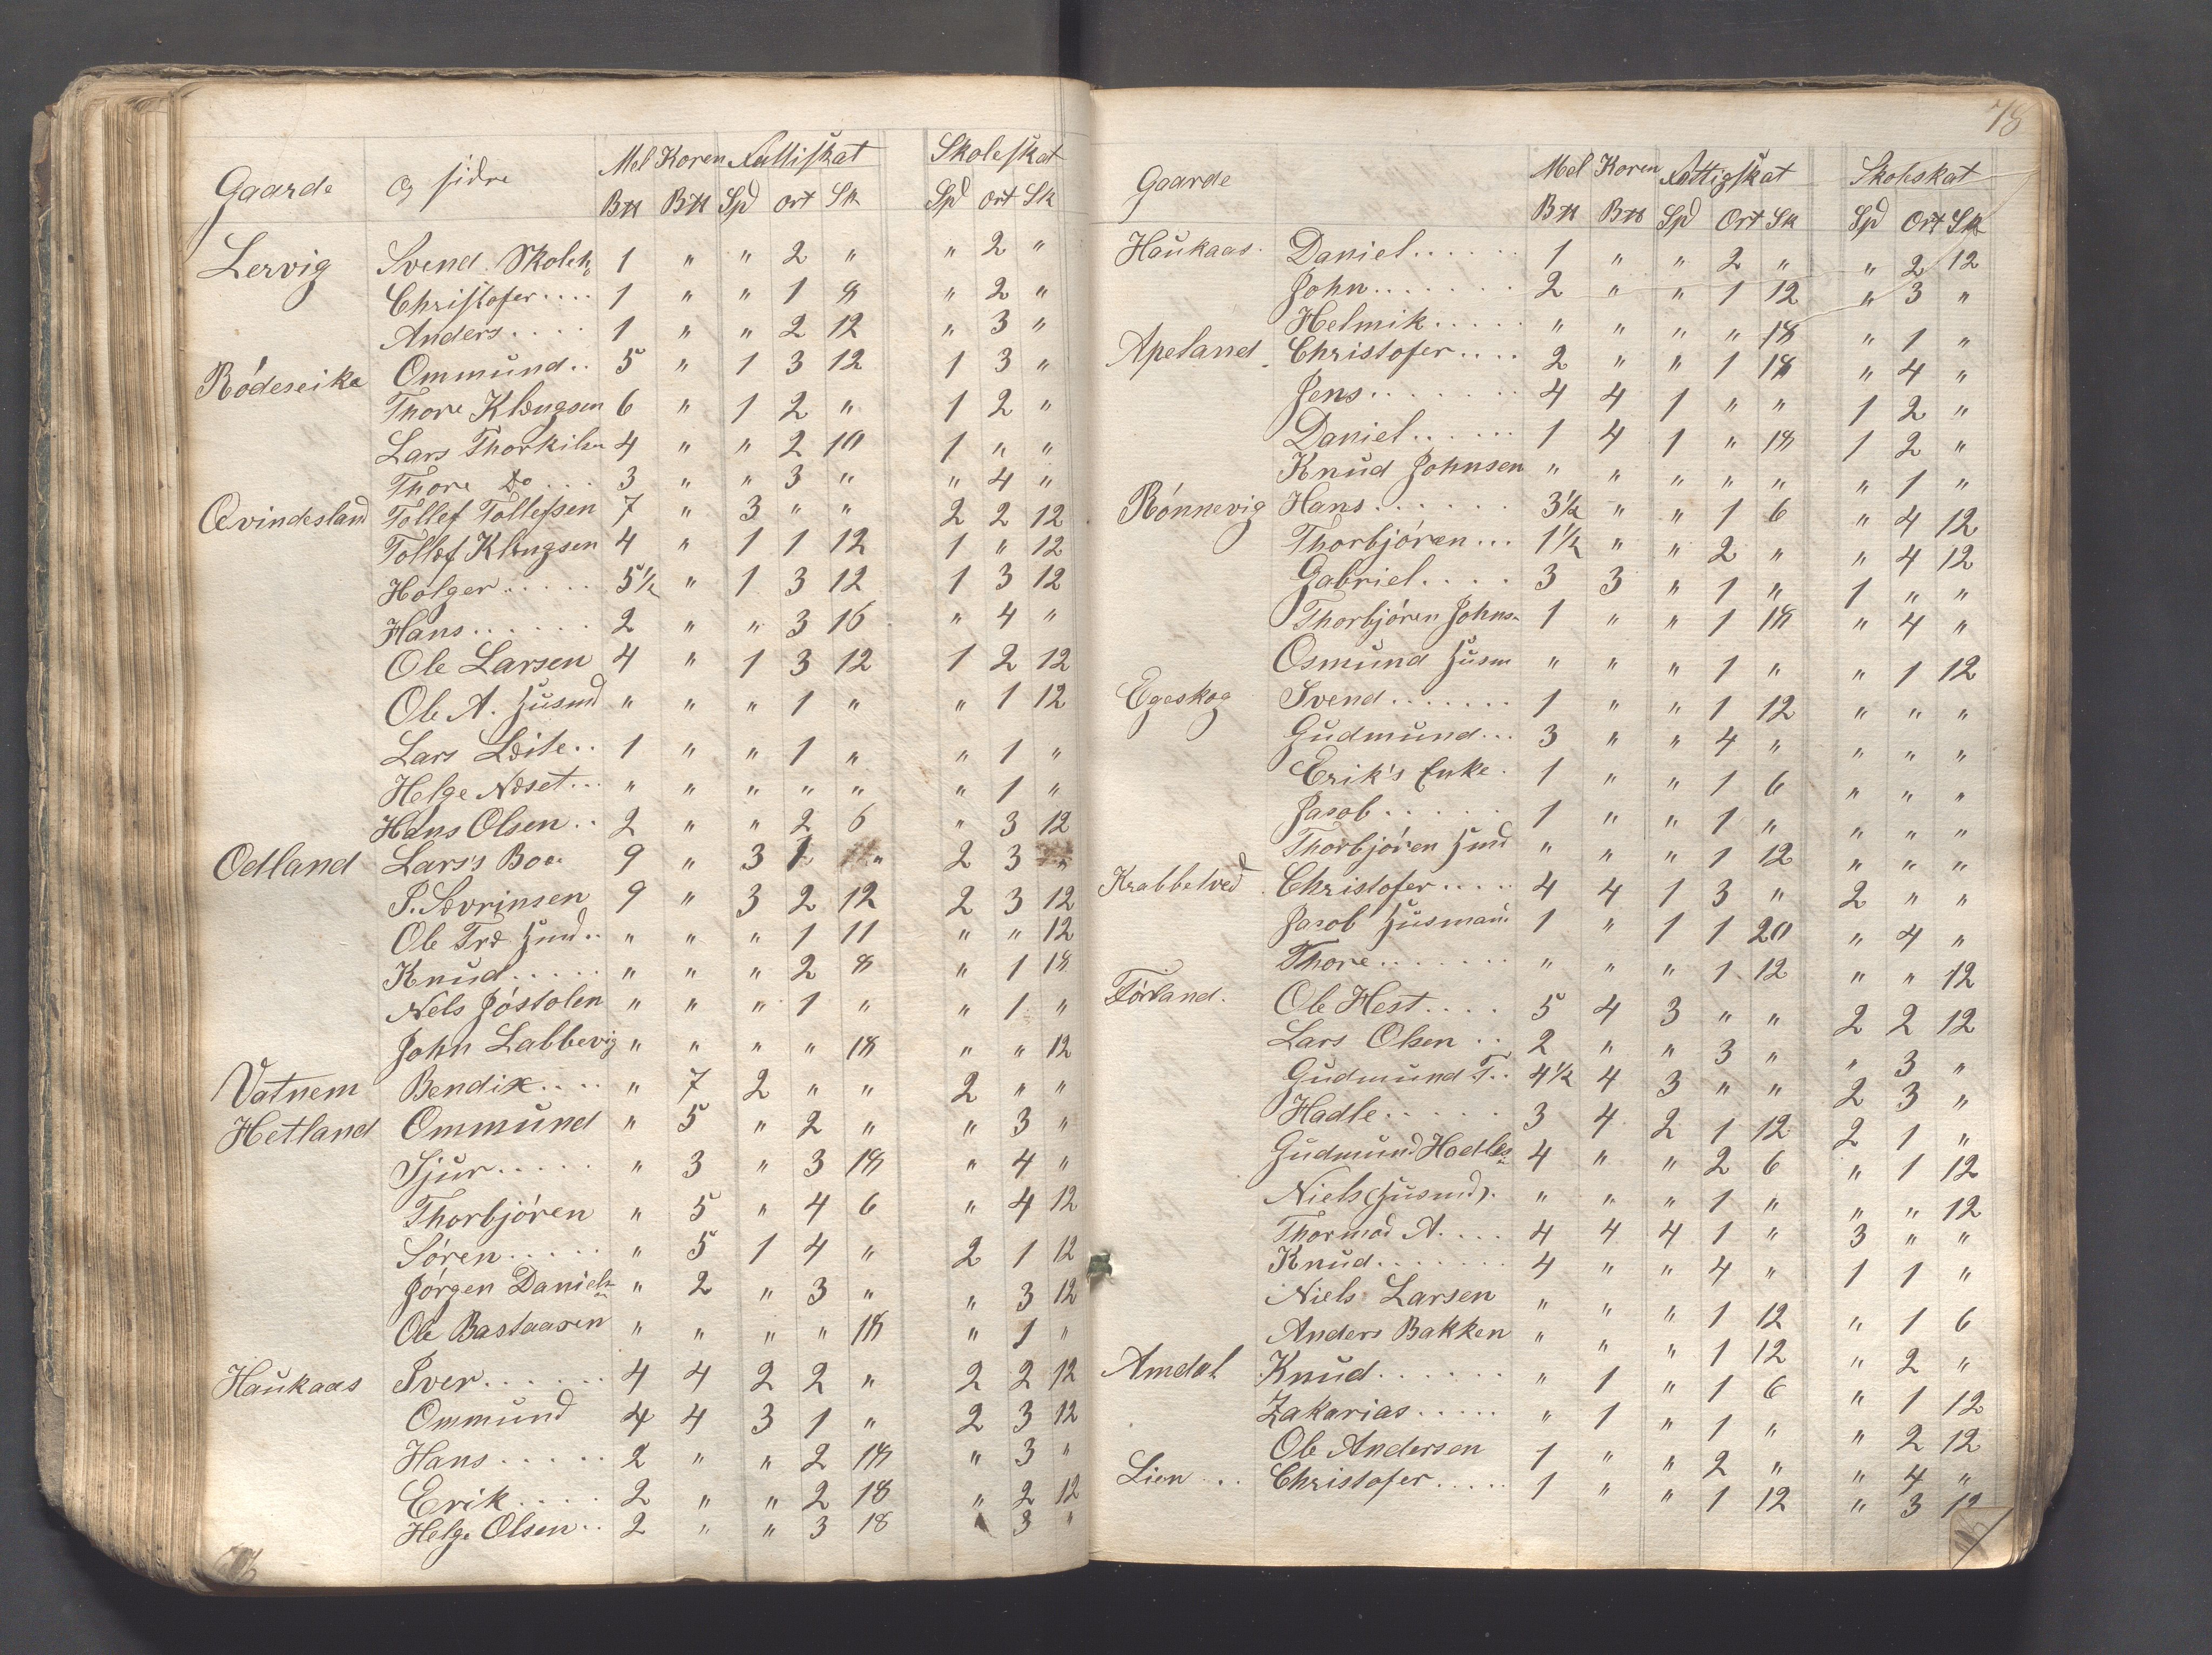 Gaarde og sidre Mel Koren Fattiskat Skoleskat
B℔ B℔ Spd ort Sk Spd ort Sk
Lervig Svend Skoleh 1 " " 2 " " 2 "
Christofer.... 1 " " 1 8 " 2 "
Anders.... 1 " " 2 12 " 3 "
Rödeseike Ommund.. 5 " 1 3 12 1 3 "
Thore Klengsen 6 " 1 2 " 1 2 "
Lars Thorkilsn 4 " " 2 10 1 " "
Thore Do... 3 " " 3 " " 4 "
Qvindesland Tollef Tollefsen 7 " 3 " " 2 2 12
Tollef Klengsen 4 " 1 1 12 1 " 12
Holger..... 5½ " 1 3 12 1 3 12
Hans...... 2 " " 3 16 " 4 "
Ole Larsen 4 " 1 3 12 1 2 12
Ole A. Husmd " " " 1 " " 1 12
Lars Leite.. 1 " " 1 " " 1 "
Helge Neset... " " " " " " 1 "
Hans Olsen.. 2 " " 2 6 " 3 12
Odland Lars's Boe 9 " 3 1 " 2 3 "
S. Sevrinsen 9 " 3 2 12 2 3 12
Ole Træ Hmd.. " " " 1 11 " " 12
Knud..... " " " 2 8 " 1 18
Nels Jöstolen " " " 1 " " 1 "
John Labbevig " " " " 18 " " 12
Vatnem Bendix.... " 7 2 " " 2 " "
Hetland Ommund " 5 " 2 " " 3 "
Sjur..... " 3 " 3 18 " 4 "
Thorbjören " 5 " 4 6 " 4 12
Sören..... " 5 1 4 " 2 1 12
Jörgen Daniels " 2 " 3 " " 3 12
Ole Bastaasen " " " " 18 " 1 "
Haukaas Iver...... 4 4 2 2 " 2 2 12
Ommund 4 4 3 1 " 2 3 12
Hans..... 2 " " 2 18 " 3 "
Erik.... 2 " " 2 18 " 2 12
Helge Olsen.. 2 " " 3 18 3 "
78
Gaarde Mel Koren Fattigskat Skoleskat
B℔ B℔ Spd Ort Sk Spd Ort Sk
Haukaas. Daniel...... 1 " " 2 " " 2 12
John...... 2 " " 1 12 " 3 "
Helmik..... " " " " 18 " 1 "
Apeland. Christofer.... 2 " " 1 18 " 4 "
Jens....... 4 4 1 " " 1 2 "
Daniel...... 1 4 1 " 18 1 2 "
Knud Johnsen " " " " " " 1 "
Rönnevig Hans...... 3½ " " 1 6 " 4 12
Thorbjören... 1½ " " 2 " " 4 12
Gabriel.... 3 3 " 1 " 1 " "
Thorbjören Johns 1 " " 1 18 " 4 "
Osmund Husm " " " 1 " " 1 12
Egeskog Svend....... 1 " " 1 12 " " "
Gudmund... 3 " " 4 " " " "
Erik's Enke. 1 " " 1 6 " " "
Jacob...... 1 " " 1 " " " "
Thorbjören Hmd " " " 1 12 " " "
Krabbetved. Christofer.... 4 4 1 3 " 2 " "
Jacob Husmand 1 " 1 1 20 " 4 "
Thore....... " " " 1 12 " " 12
Förland. Ole Hest.... 5 4 3 " " 2 2 12
Lars Olsen.. 2 " " 3 " " 3 "
Gudmund T.. 4½ 4 3 " " 2 3 "
Hadle..... 3 4 2 1 12 2 1 "
Gudmund Hadles 4 " " 2 6 " 1 12
Niels (Husmd). " " " 1 " " " 12
Thormod A.... 4 4 4 1 " 3 " "
Knud....... 4 " " 4 " 1 1 "
Niels Larsen " " " 1 12 " 1 6
Anders Bakken " " " 1 12 " 2 "
Amdal Knud...... " 1 " 1 6 " 1 12
Zakarias..... " 1 " 1 " " 2 12
Ole Andersen 1 " " 2 " " 4 "
Lien .. Christofer..... 1 " " 1 12 " 3 12